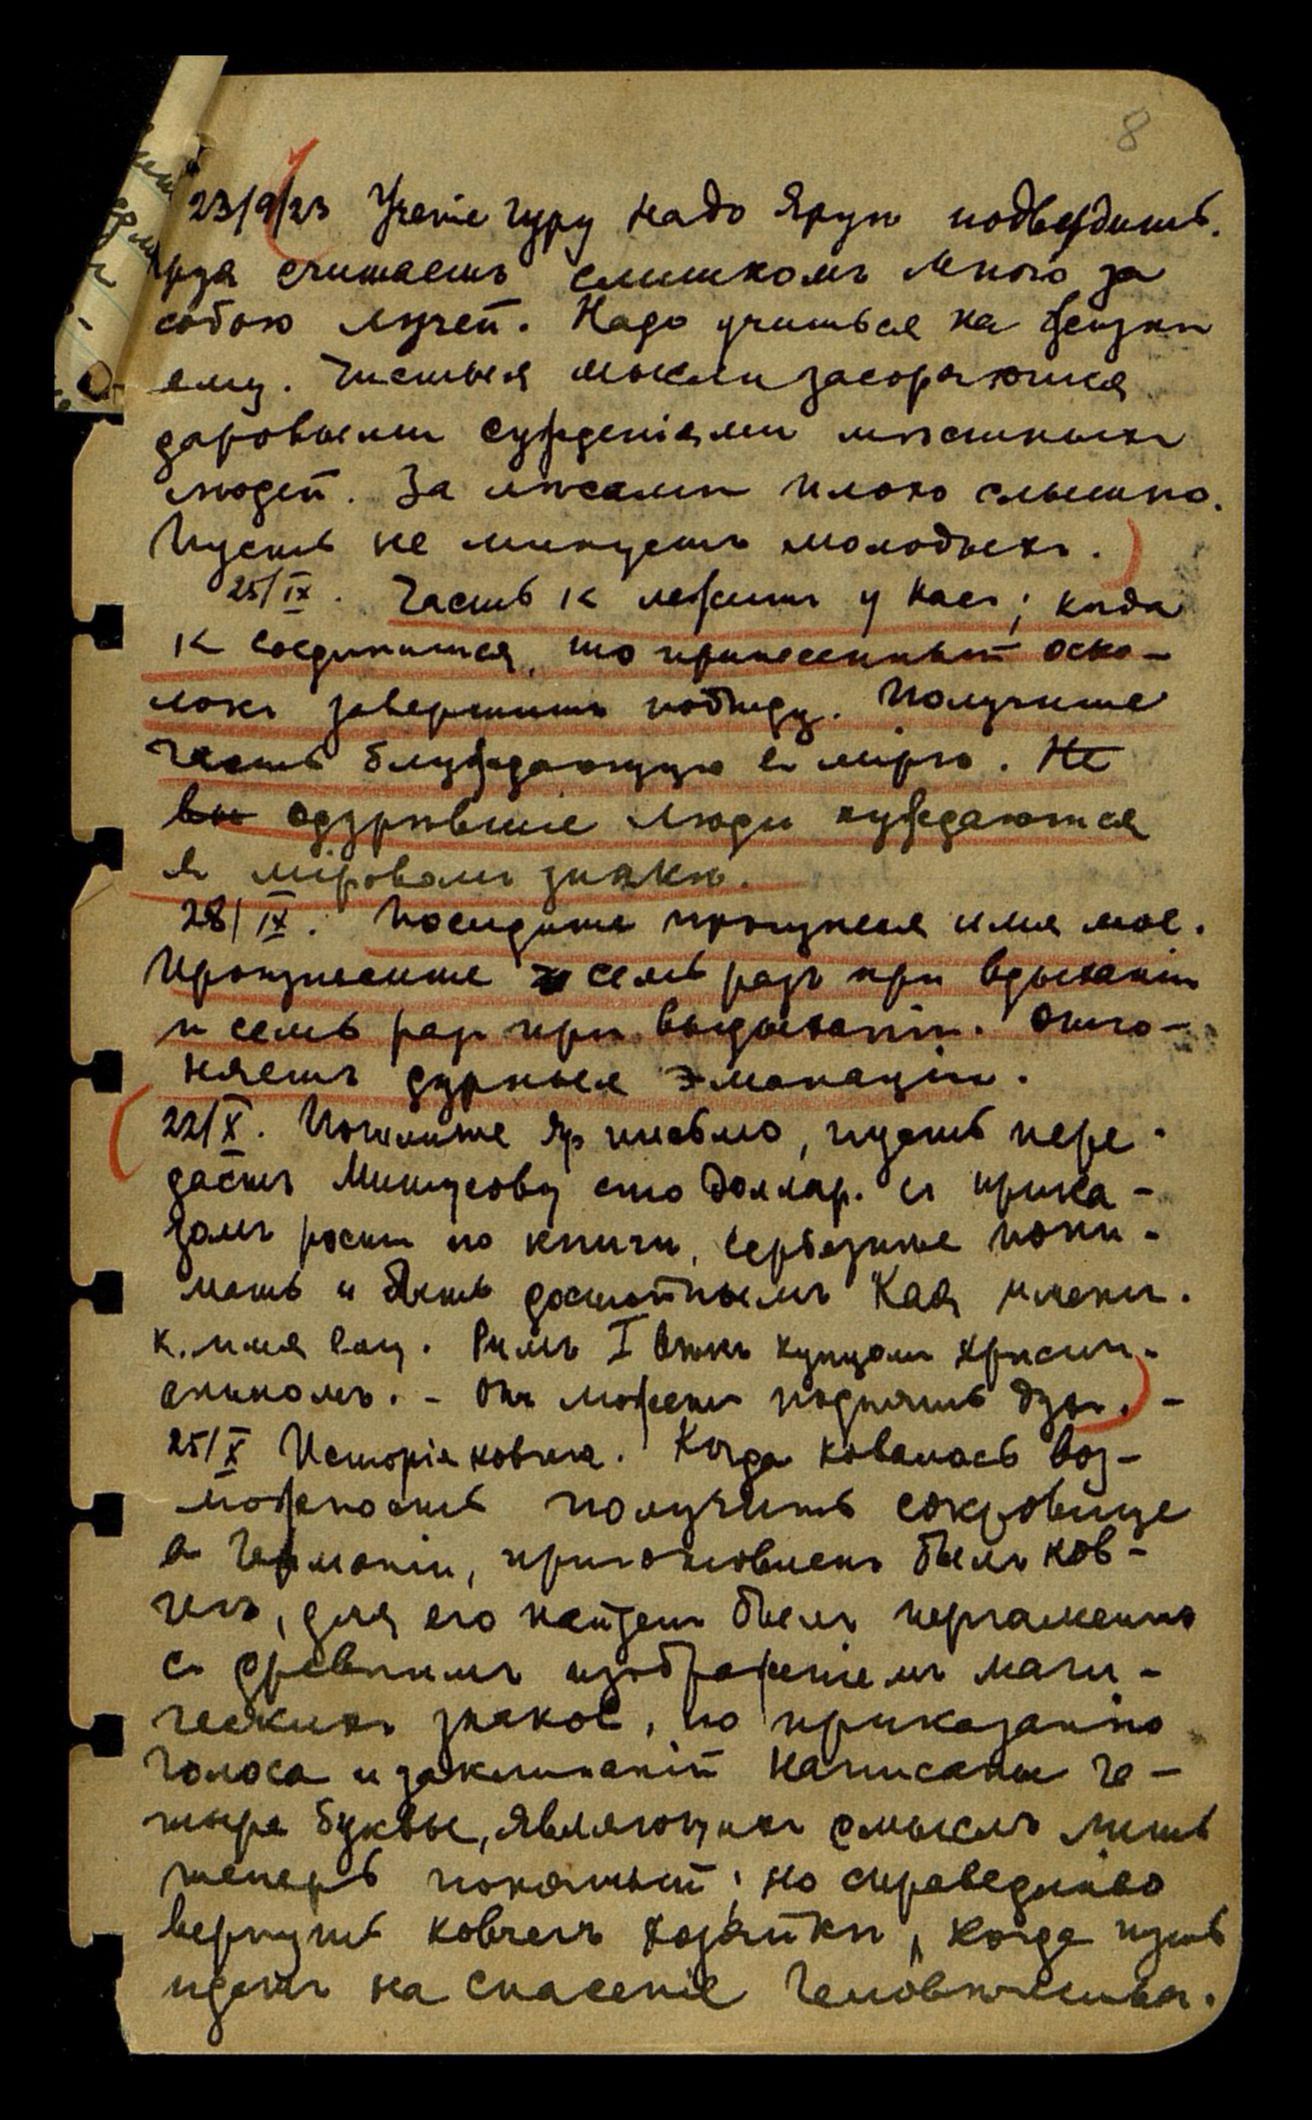 8
23/9/23 Ученіе гуру надо Ярун подвердить.
считаетъ слишкомъ много за
собою лучей. Надо учиться на
ему. Чистыя мысли засоряются
даровыми сужденіями мѣстныхъ
людей. За лѣсами плохо слышно.
Пусть не минуетъ молодыхъ.
25/IX. Часть К лежитъ у насъ; когда
К соединится, то принесенный оско-
локъ завершитъ побѣду. Получите
часть блуждающую въ мірѣ. Не
вы одзрѣвшіе люди нуждаются
въ міровомъ знакѣ.
28/IX. Посидите произнося имя мое.
Произнесите семь разъ при вдыханіи
и семь раз при выдыханіи. Отго-
няетъ дурныя эманаціи.
22/X. Пошлите Яр письмо, пусть пере-
дастъ Минцлову сто доллар. съ прика-
зомъ расти по книги,
мать и быть достойнымъ Каа имени.
К. имя Римъ I вѣкъ купцомъ христи-
аниномъ. – Онъ можетъ поднять –
25/X Исторія ковчега. Когда ковалась воз-
можность получить сокровище
въ Германіи, приготовленъ былъ ков-
чегъ, для его найденъ былъ пергаментъ
съ древнимъ изображеніемъ маги-
ческихъ знаков, по приказанію
голоса и заклинаній написаны че-
тыре буквы, являющихъ смыслъ лишь
теперь понятый; но справедливо
вернуть ковчегъ хозяйкѣ, когда путь
идетъ на спасеніе человѣчества.